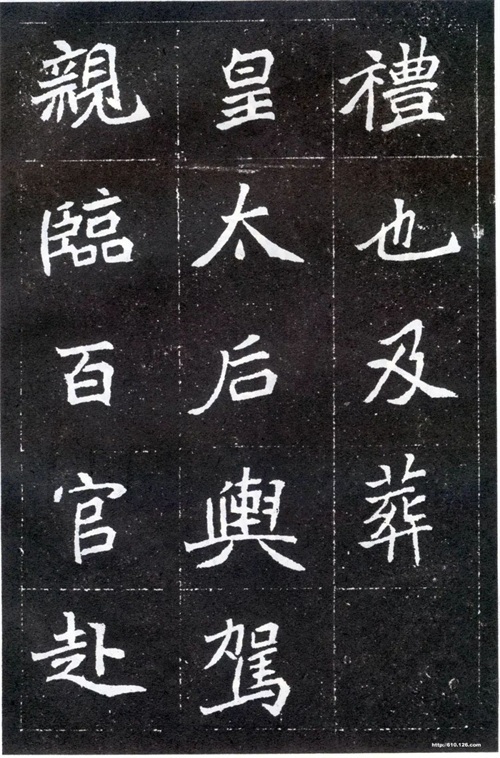 禮也及葬
皇太后輿駕
親臨百官赴
http://610.126.com